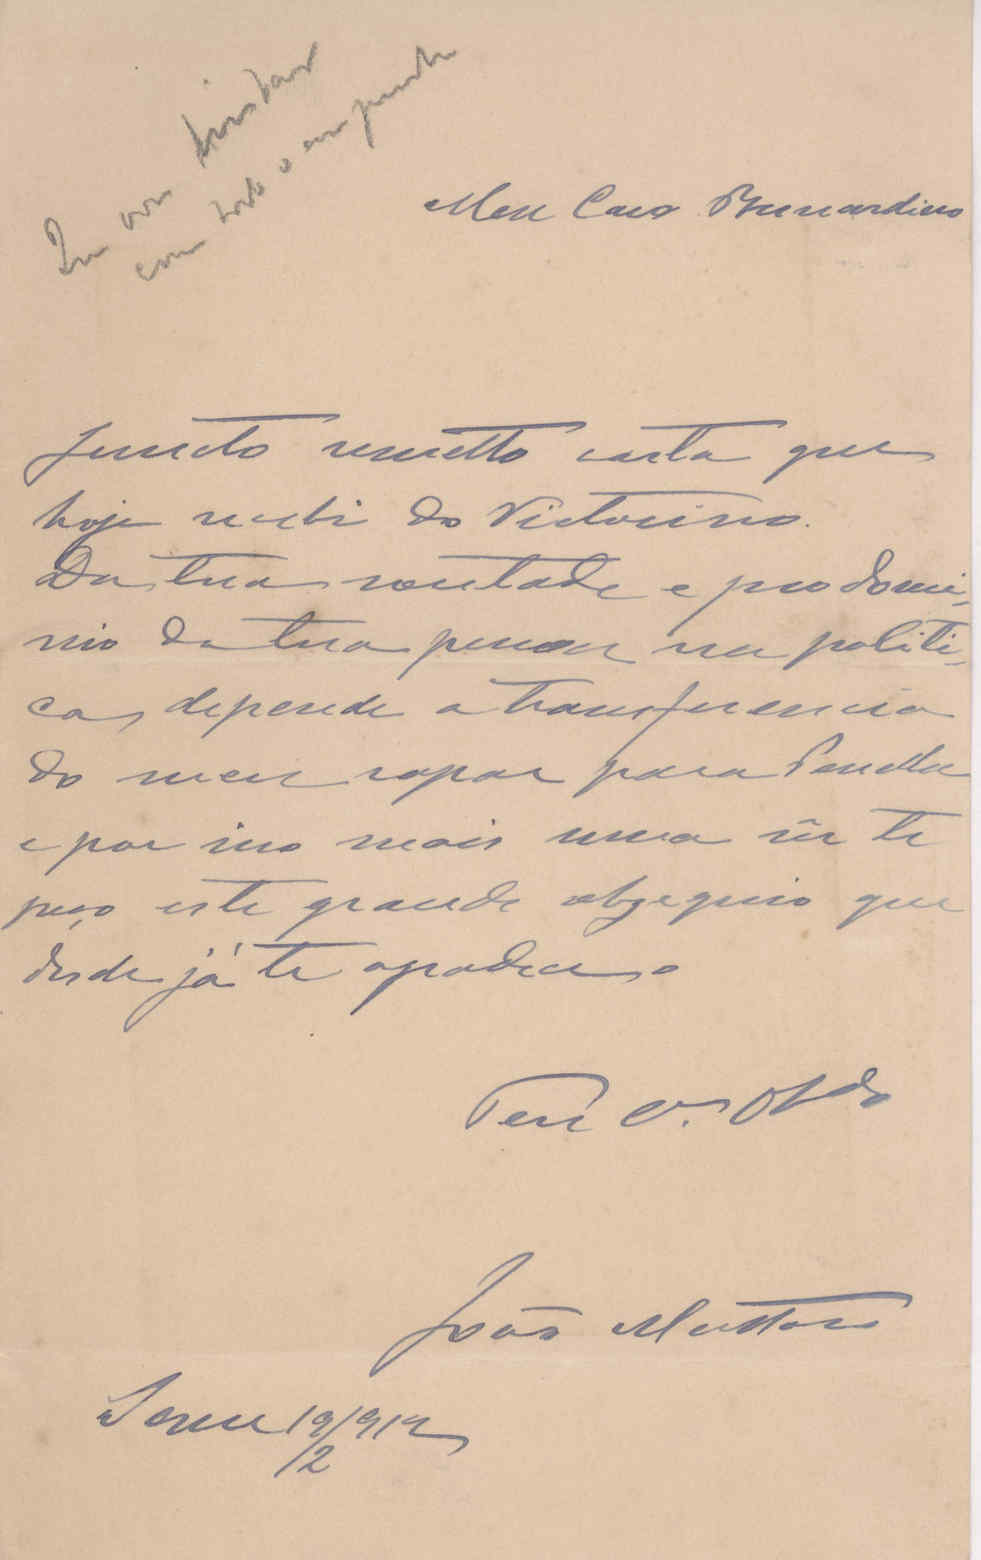 com todo o empenho
Meu Caro Bernardino
Junto remetto carta que
hoje recebi do Victorino.
Da tua vontade e predomi-
nio da tua pessoa na politi-
ca, depende a transferencia
do meu rapaz para Penella
e por isso mais uma vez te
peço este grande obzequio que
desde já te agradece o
Teu Am.º Obgdo
João Mattos
19/2/912